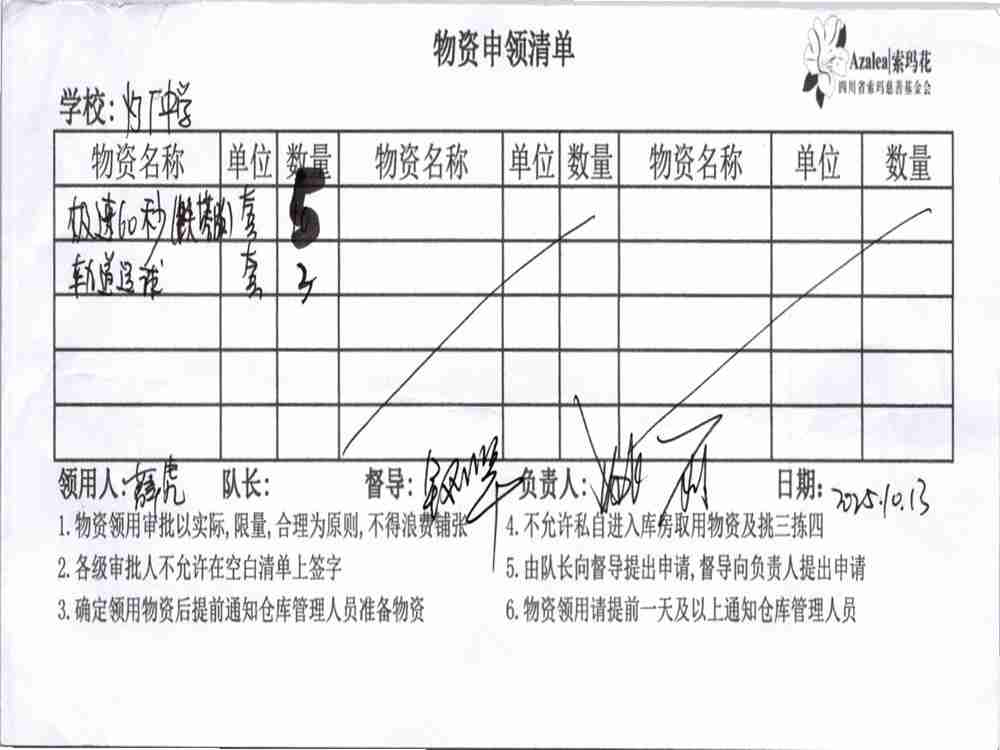 物资申领清单
Azalea|索玛花
四川省索玛慈善基金会
学校: 中学
物资名称 单位 数量 物资名称 单位 数量 物资名称 单位 数量
极速60秒(铁塔版) 套 5
轨道运球 套 3
领用人: 虎 队长: 督导: 负责人: 日期: 2025.10.13
1.物资领用审批以实际,限量,合理为原则,不得浪费铺张 4.不允许私自进入库房取用物资及挑三拣四
2.各级审批人不允许在空白清单上签字 5.由队长向督导提出申请,督导向负责人提出申请
3.确定领用物资后提前通知仓库管理人员准备物资 6.物资领用请提前一天及以上通知仓库管理人员